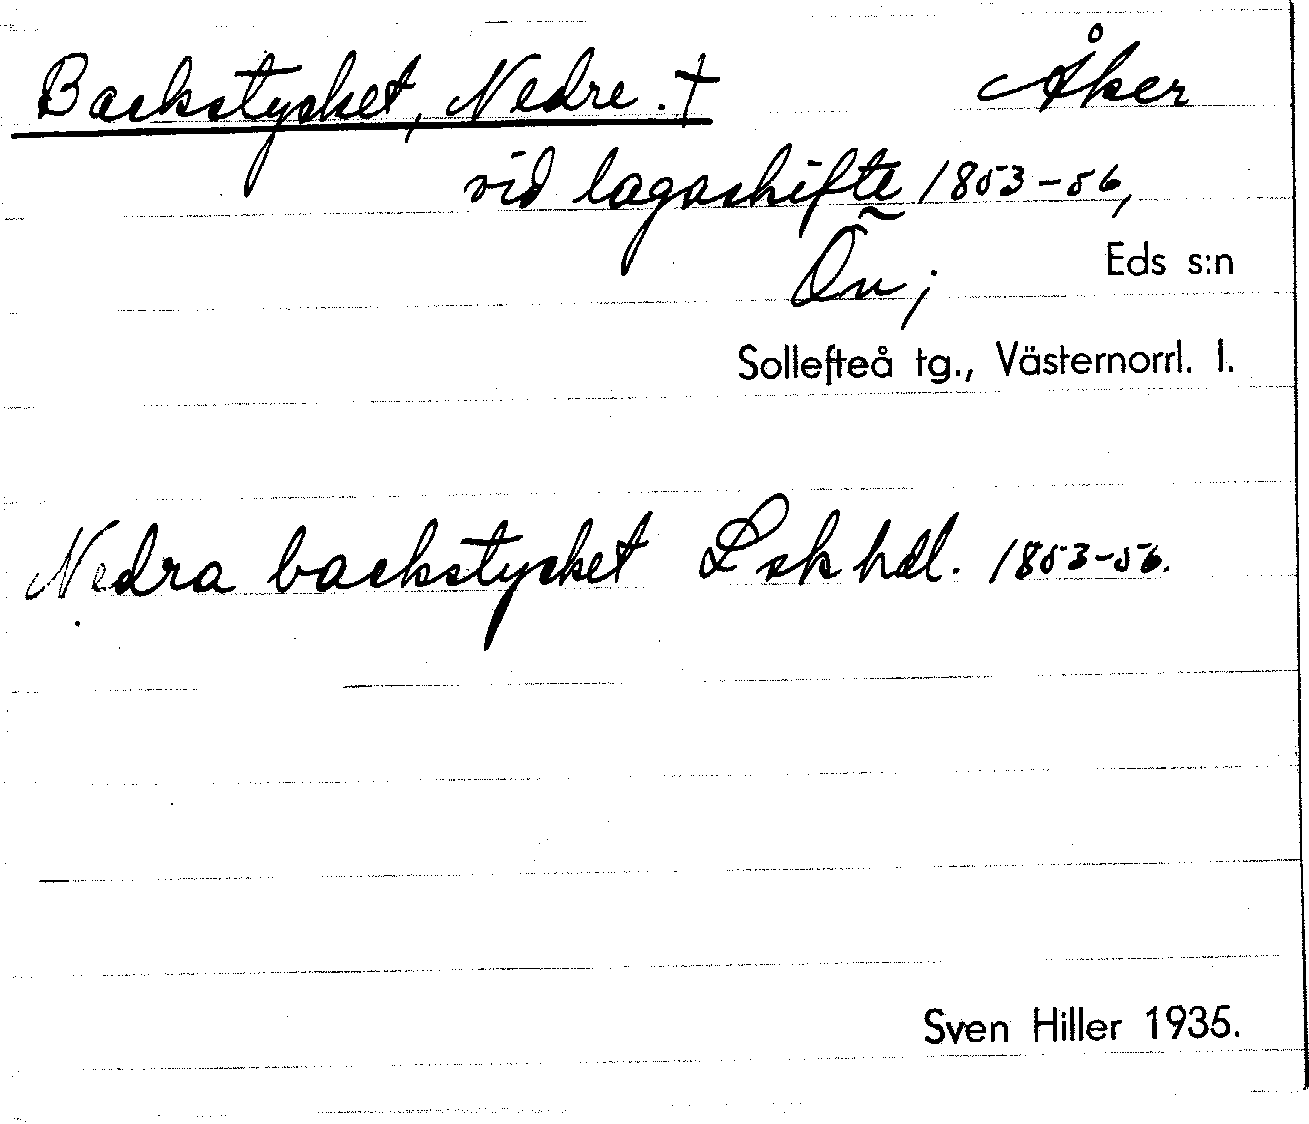 Backstycket, Nedre. † Åker
vid lagaskifte 1853-56,
Ön; Eds s:n
Sollefteå tg., Västernorrl. l.
Nedra backstycket Lskhdl. 1853-56.
Sven Hiller 1935.